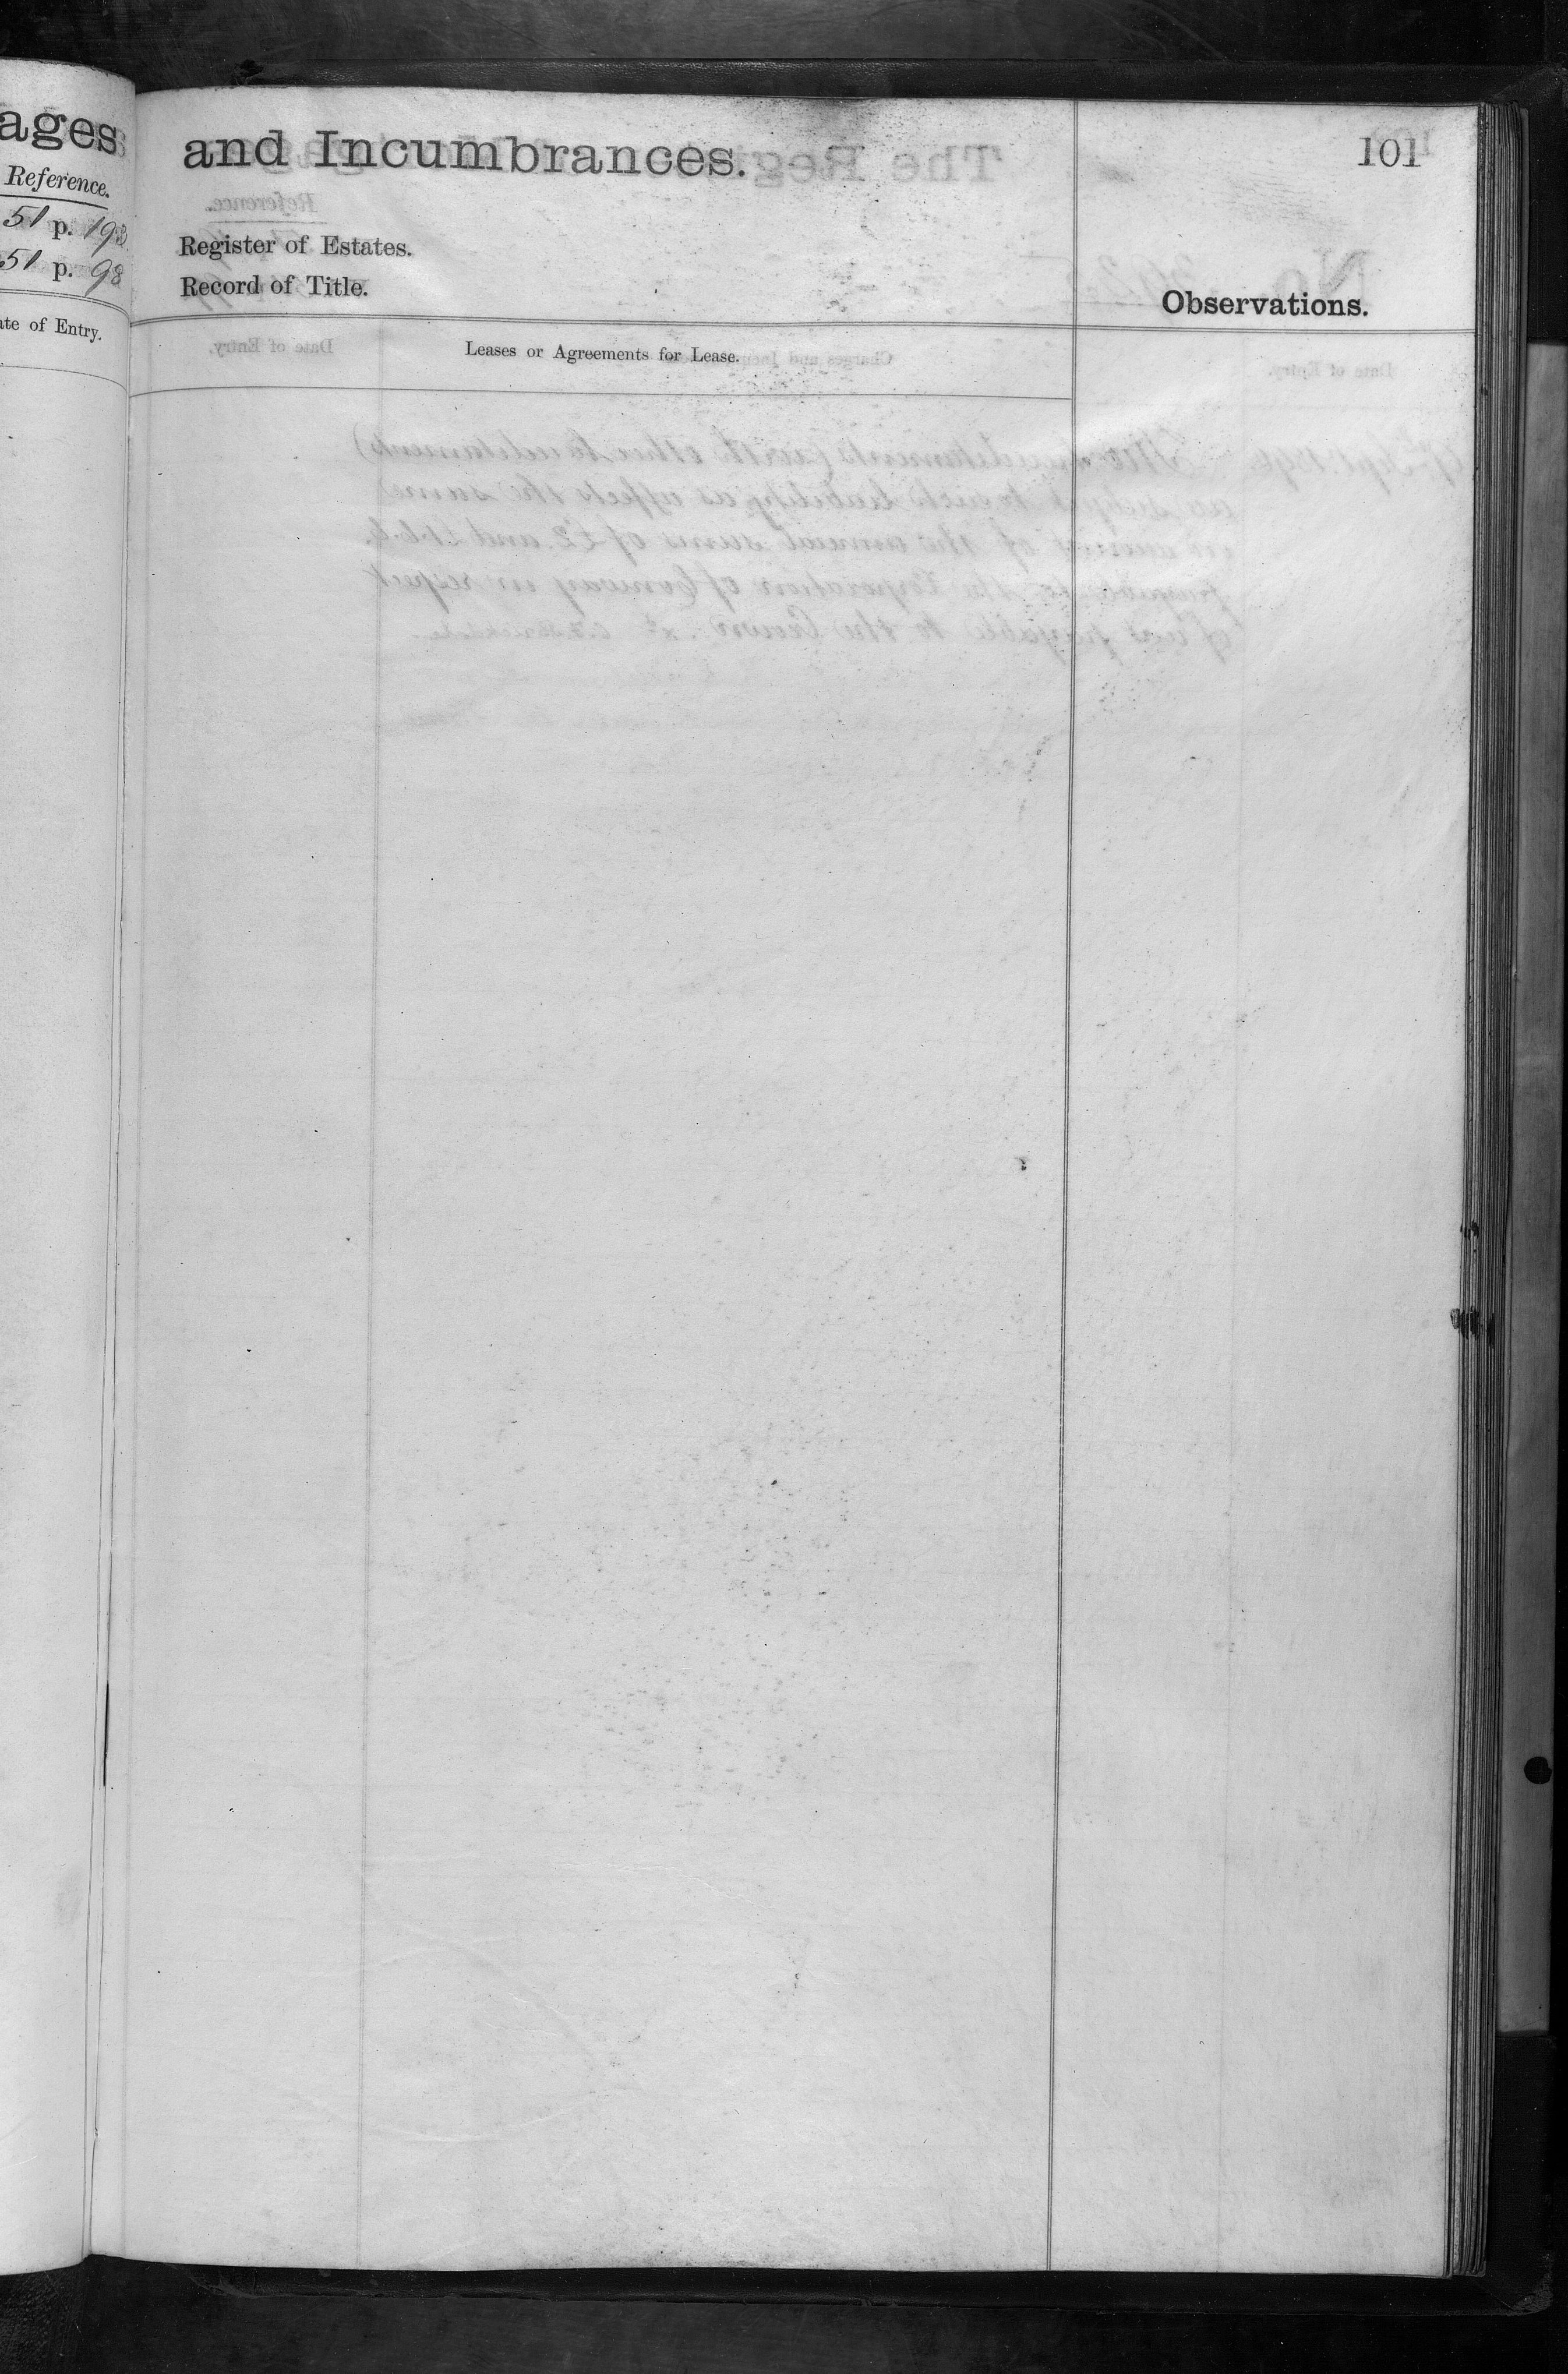 ages
Reference.
51 p. 193
51 p. 98
ate of Entry.
and Incumbrances.
101
Register of Estates.
Record of Title.
Observations.
Leases or Agreements for Lease.